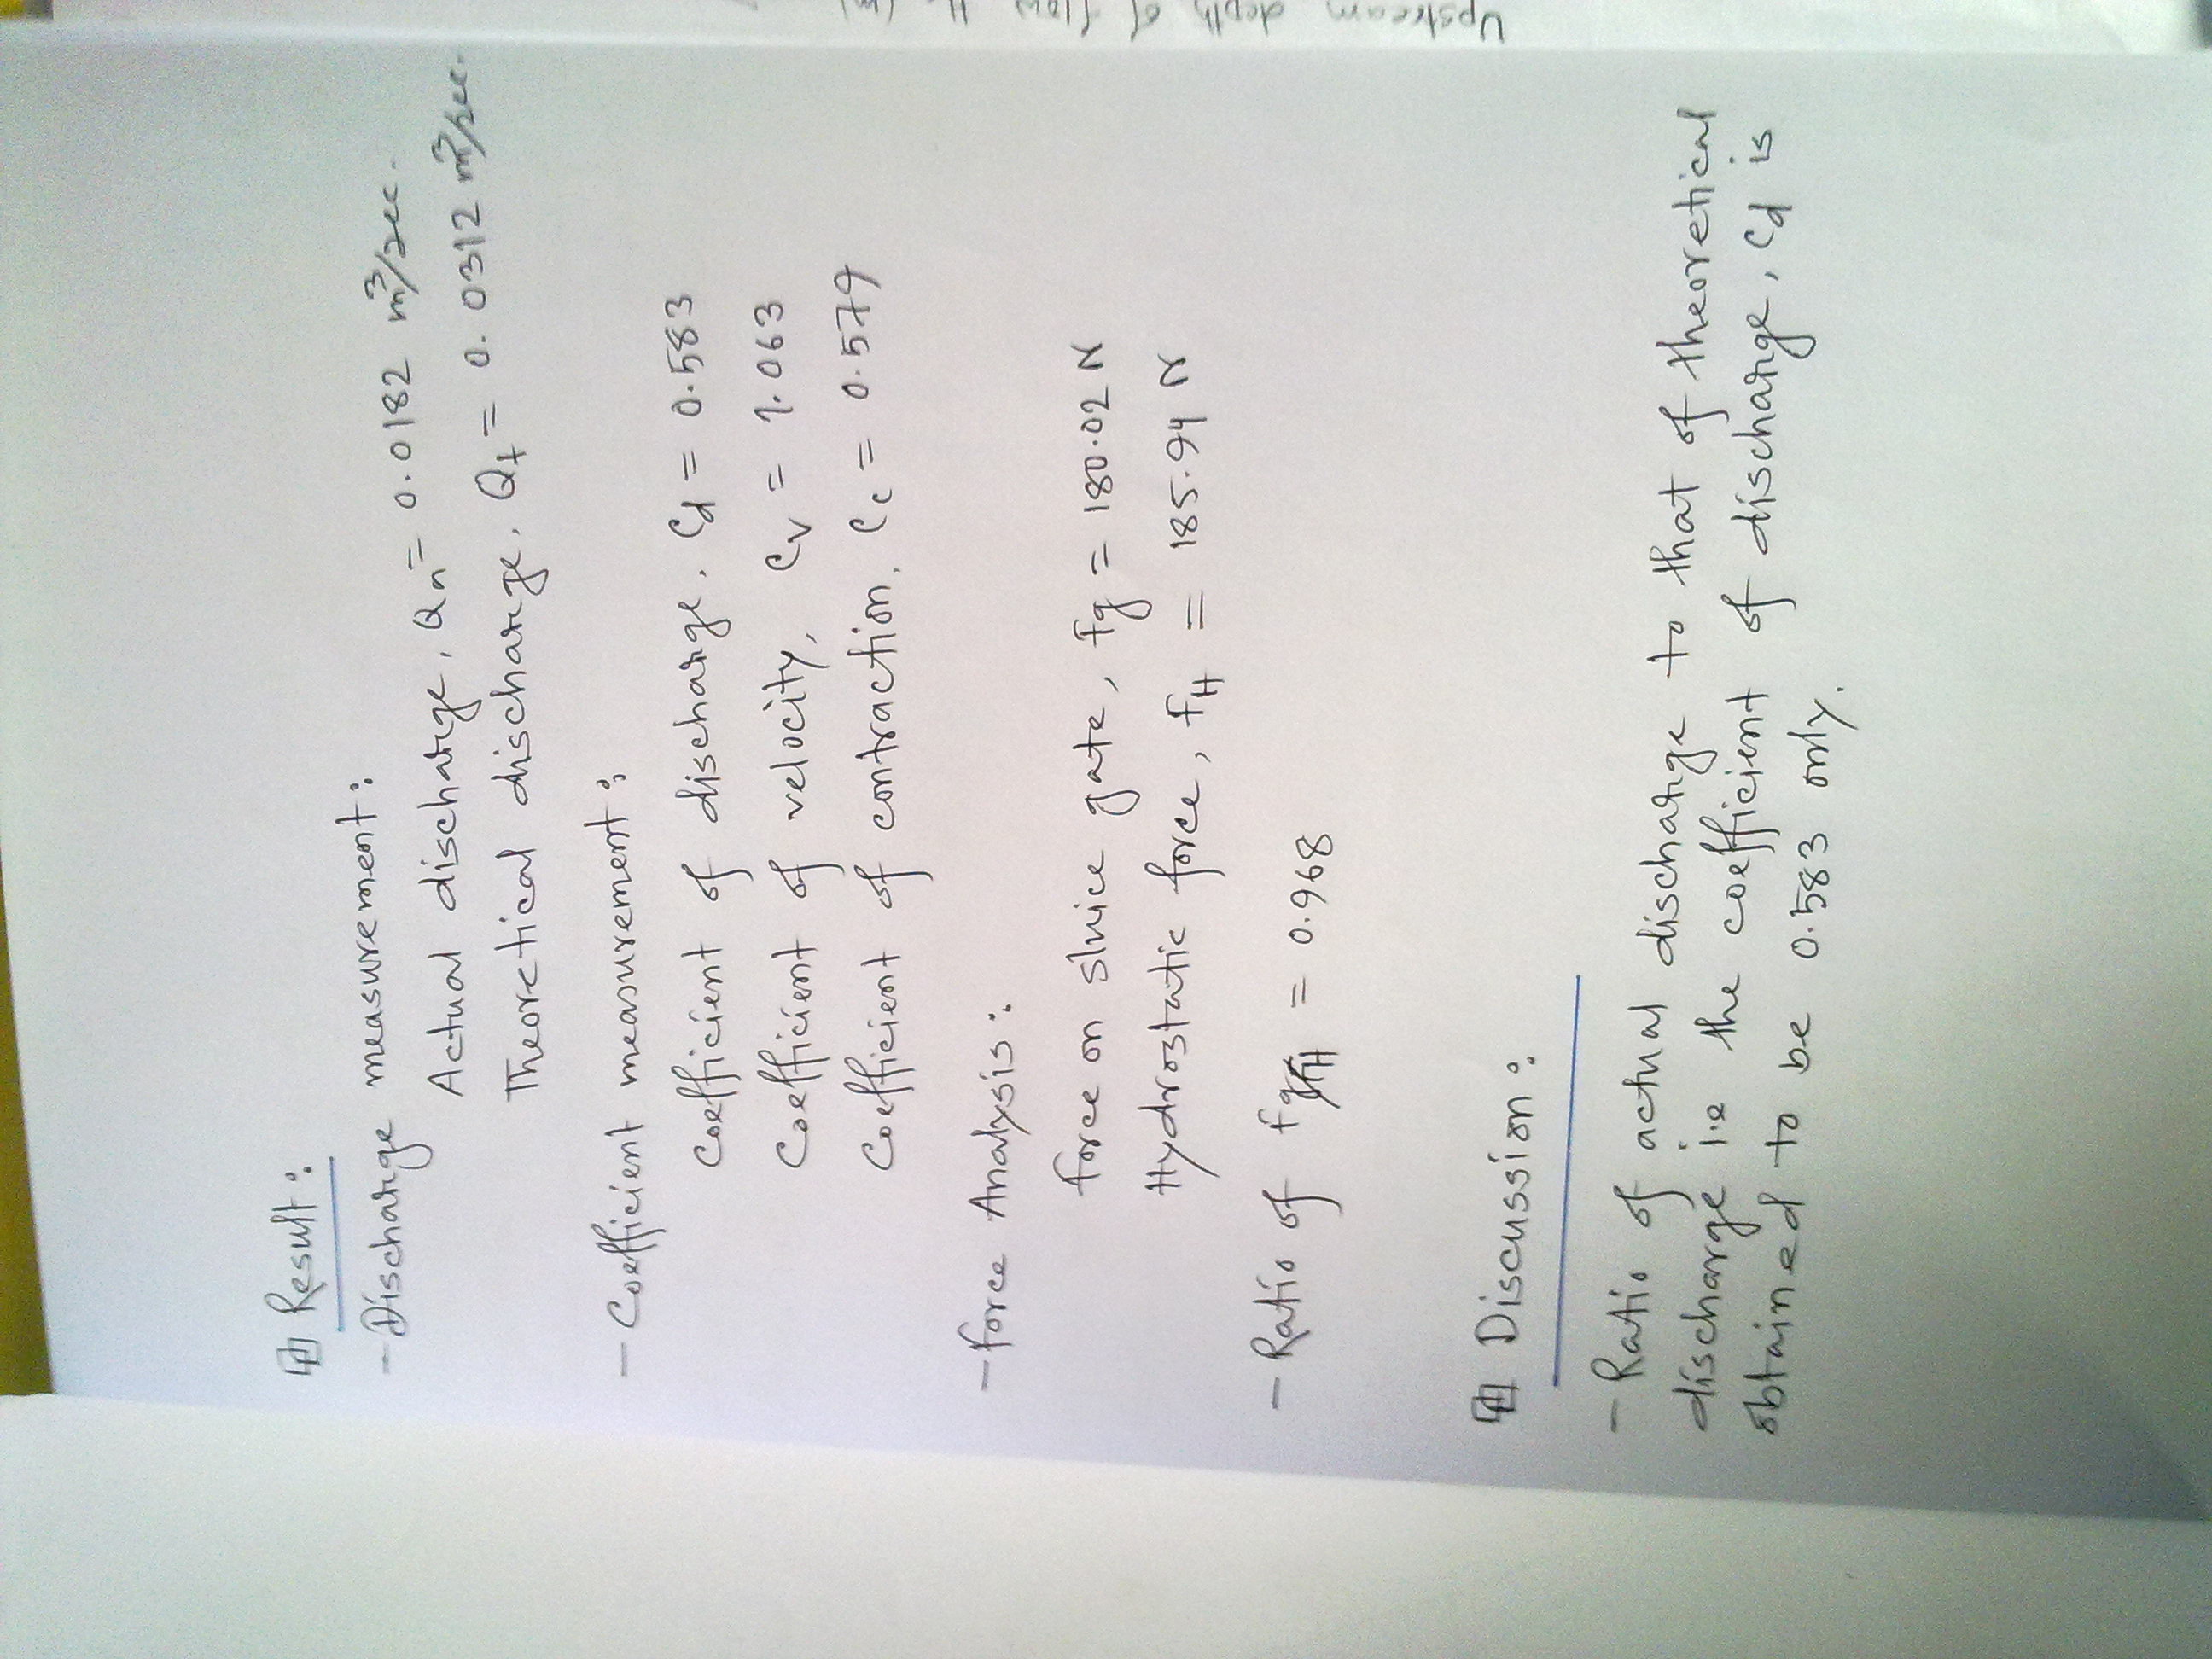 Upstream depth of flow
Result:
- Discharge measurement:
Actual discharge, Qa = 0.0182 m³/sec.
Theoretical discharge, Qt = 0.0312 m³/sec.
- Coefficient measurement:
Coefficient of discharge, Cd = 0.583
Coefficient of velocity, Cv = 1.063
Coefficient of contraction, Cc = 0.579
- Force Analysis:
Force on sluice gate, Fg = 180.02 N
Hydrostatic force, FH = 185.94 N
- Ratio of Fg/FH = 0.968
Discussion:
- Ratio of actual discharge to that of theoretical
discharge i.e the coefficient of discharge, Cd is
obtained to be 0.583 only.